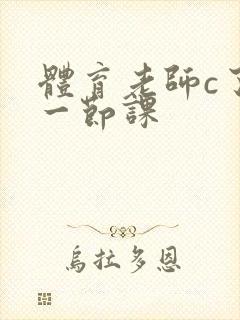 體育老師c了
一節課
烏拉多恩